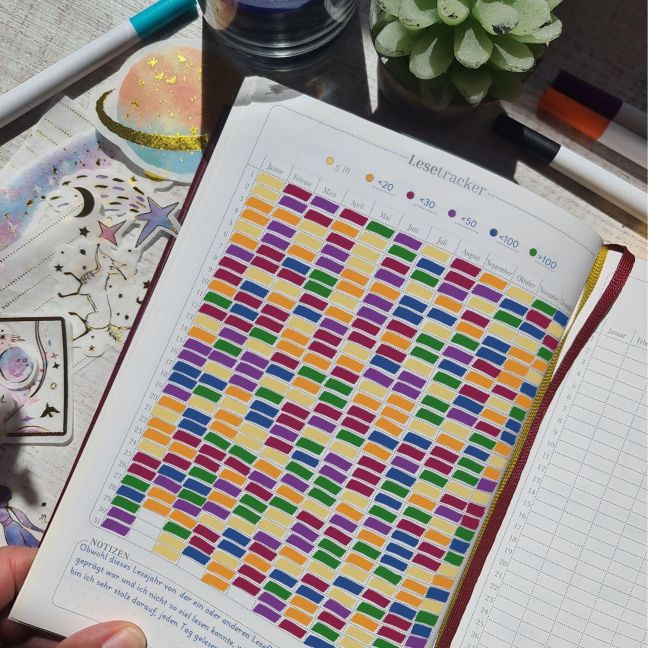 Lesetracker
≤ 10
<20
<30
<50
<100
>100
Januar Februar März April Mai Juni Juli August September Oktober November
2
3
4
5
6
7
8
9
10
11
12
13
14
15
16
17
18
19
20
21
22
23
24
25
26
27
28
29
30
31
NOTIZEN
Obwohl dieses Lesejahr von der ein oder anderen
geprägt war und ich nicht so viel lesen konnte,
bin ich sehr stolz darauf, jeden Tag gelesen
Januar